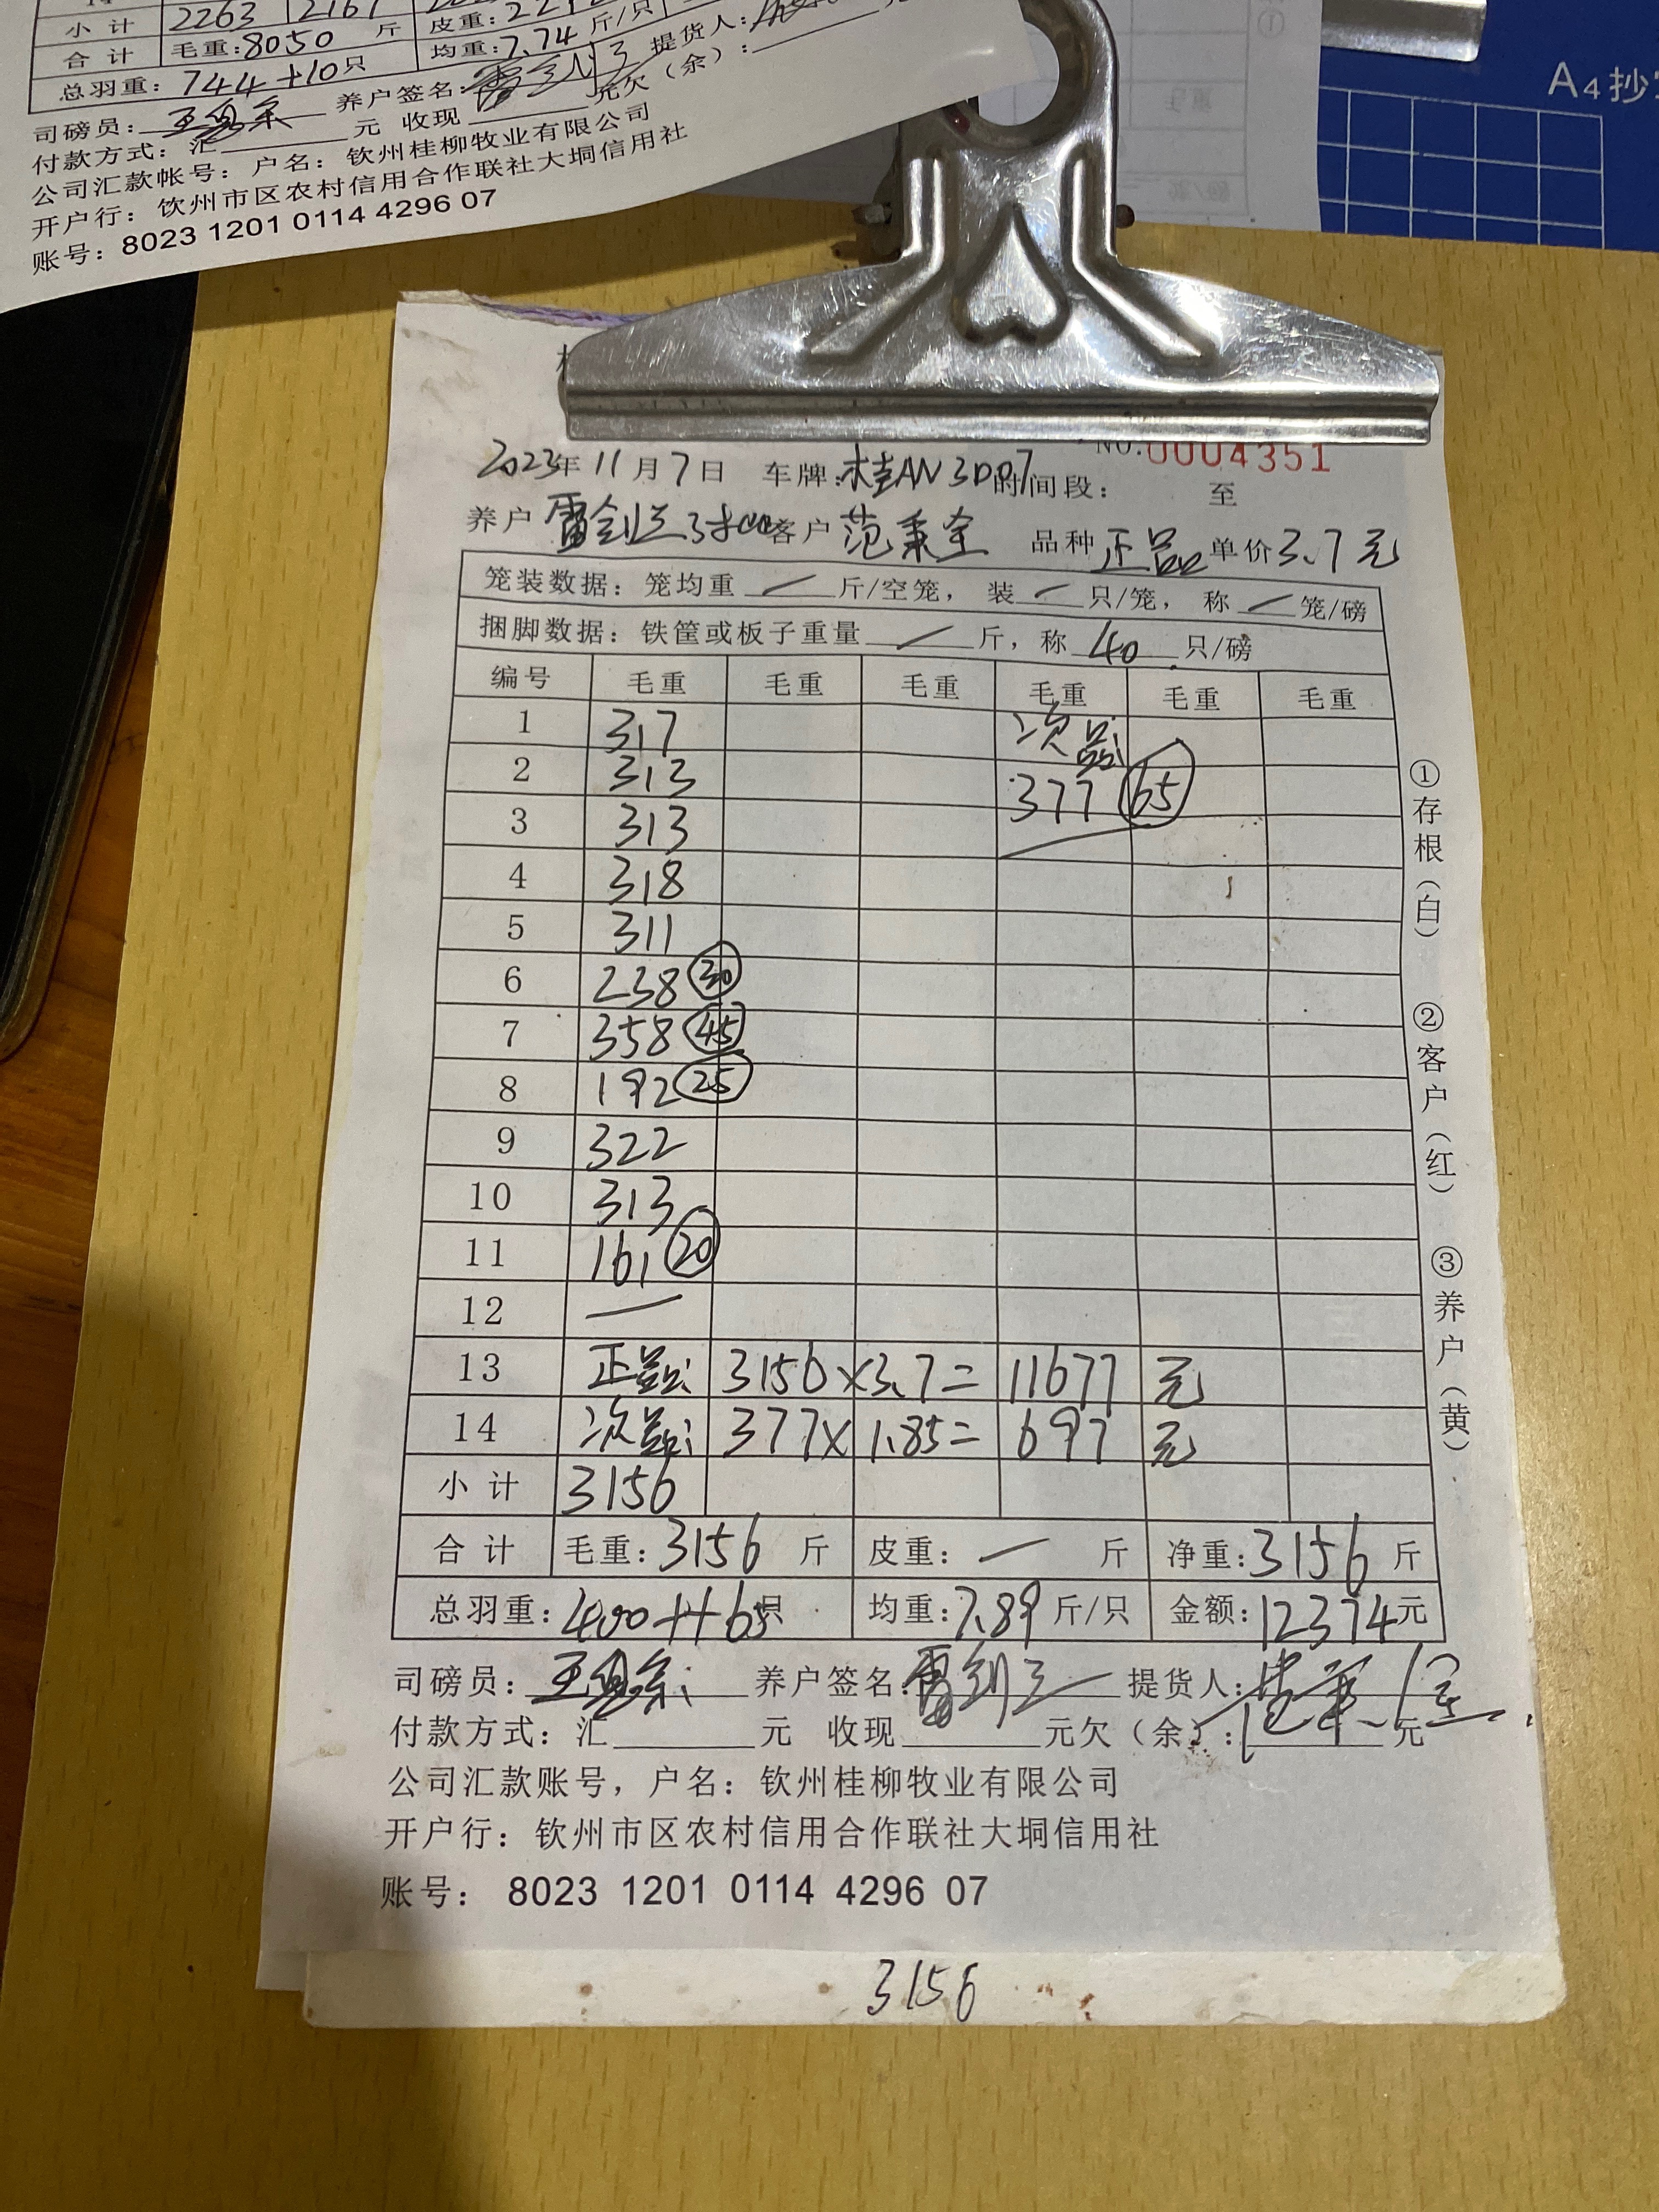 小计 2263 2161
合计 毛重:8050 斤 皮重:
均重:7.74 斤/只 提货人:
总羽重: 744+10只
司磅员: 养户签名:
付款方式: 汇 元 收现 元欠(余):
公司汇款帐号: 户名: 钦州桂柳牧业有限公司
开户行: 钦州市区农村信用合作联社大垌信用社
账号: 8023 1201 0114 4296 07
A4抄
NO.0004351
2023年11月7日 车牌:桂AN3D07时间段: 至
养户 客户 范秉全 品种 正品 单价3.7元
笼装数据: 笼均重 一 斤/空笼, 装 一 只/笼, 称 一 笼/磅
捆脚数据: 铁筐或板子重量 一 斤, 称 40 只/磅
编号 毛重 毛重 毛重 毛重 毛重 毛重
1 317 次品:
2 313 377 65
3 313
4 318
5 311
6 238 30
7 358 45
8 192 25
9 322
10 313
11 161 20
12 一
13 正品: 3156×3.7= 11677 元
14 次品: 377× 1.85= 697 元
小计 3156
合计 毛重:3156 斤 皮重: 一 斤 净重:3156 斤
总羽重:400++65只 均重:7.89 斤/只 金额:12374元
司磅员: 养户签名: 提货人:
付款方式: 汇 元 收现 元欠(余): 元
公司汇款账号, 户名: 钦州桂柳牧业有限公司
开户行: 钦州市区农村信用合作联社大垌信用社
账号: 8023 1201 0114 4296 07
①存根(白) ②客户(红) ③养户(黄)
3156